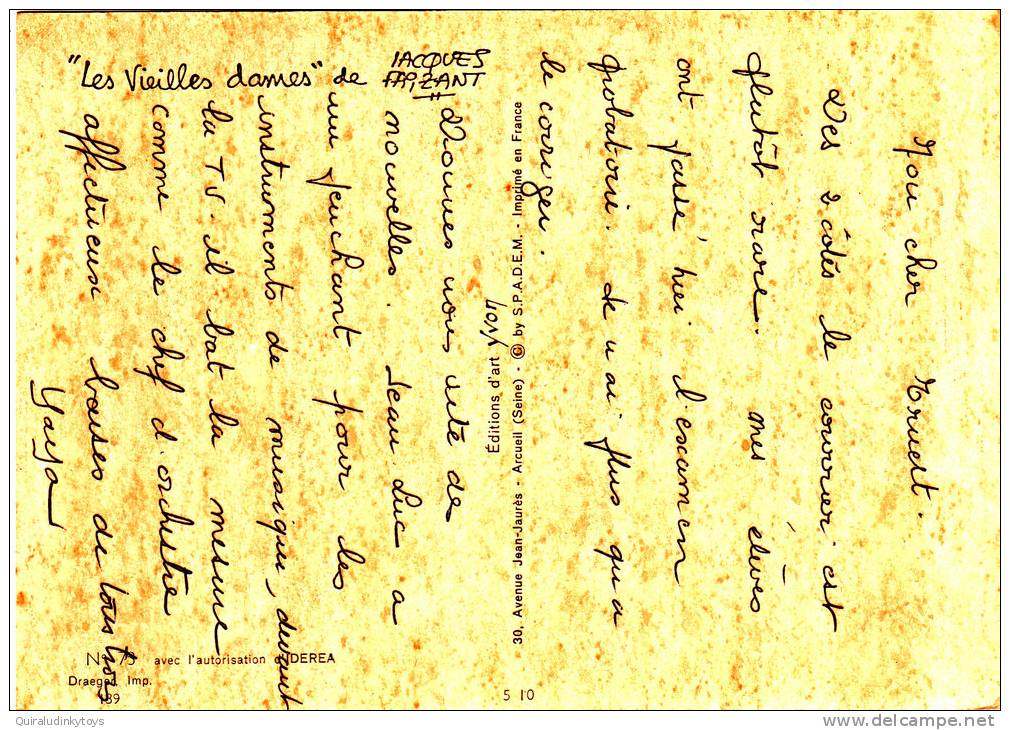 "Les Vieilles dames" de JACQUES FAIZANT
Mon cher Ernest.
Des 2 côtés le courrier est
plutôt rare. mes élèves
ont passé hier l'examen
probatoire. Je n'ai plus qu'a
le corriger.
Donnes nous vite de
nouvelles. Jean Luc a
un penchant pour les
instruments de musique, devant
la TV. il bat la mesure
comme le chef d'orchestre
affectueux baises de tous trois
Yaya
Éditions d'art YVON
30, Avenue Jean-Jaurès - Arcueil (Seine) - © by S.P.A.D.E.M. - Imprimé en France
N° 73 avec l'autorisation d'IDEREA
Draeger Imp.
189
5 10
Quiraludinkytoys
www.delcampe.net